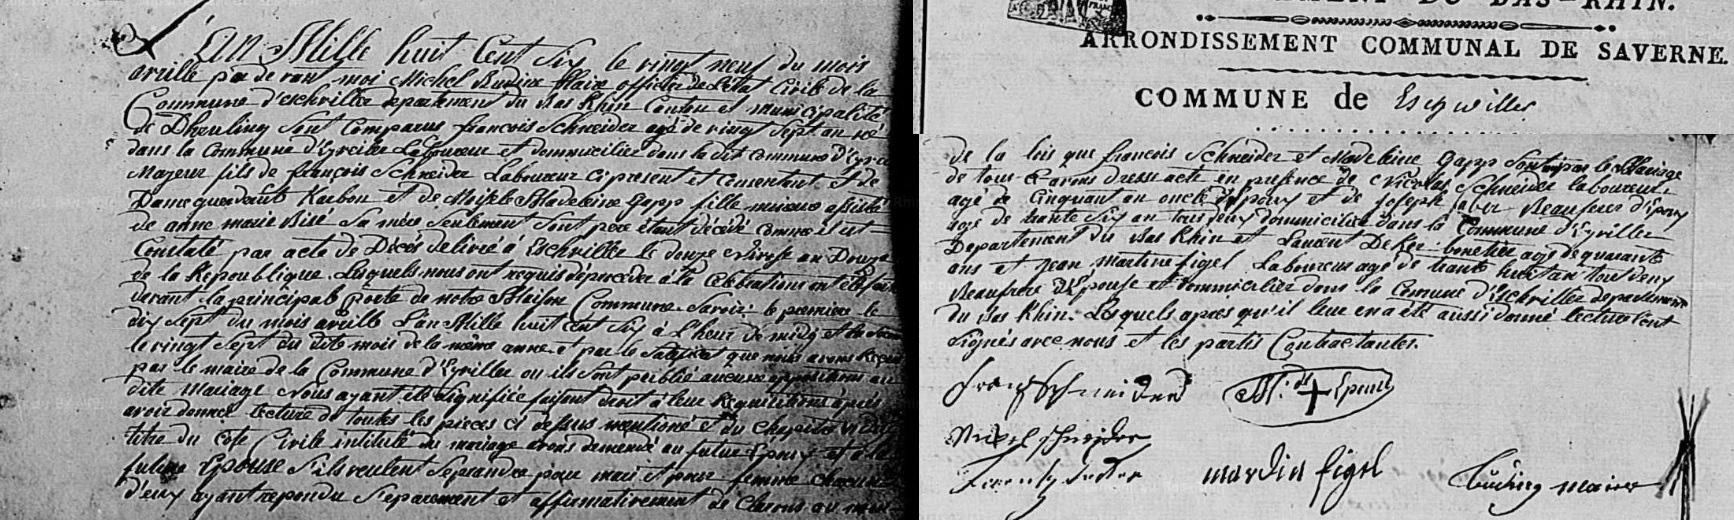 L'An Mille huit Cent Six le vingt neuf du mois
avrille par devant moi Michel Buding Maire officier de l'Etat Civile de la
Commune d'Eschviller departement du Bas Rhin Canton et municipalité
de Dhruling sont comparus françois Schneider agé de vingt Sept an né
dans la Commune d'Eyviller Laboureur et dommicilier dans la dit Commune d'Eyvi
Majeur fils de françois Schneider Laboureur ci present et Consentent et de
Dame quervant Karbon et de Moiselle Madeleine Gapp fille mineur assisté
de anne marie sa mère seulement sont pere étant décédé comme il est
Constaté par acte de Décès delivré à Eschviller le douze Nivose an Douze
de la Republique. Lesquels nous ont requis de proceder à la Celebration
devant la principale Porte de notre Maison Commune Savoir le premiere le
dix Sept du mois avrille L'an Mille huit cent Six à L'heur de midy et
le vingt Sept du dite mois de la même anne. et par le Satificat que nous avons Reçus
par le maire de la Commune d'Eyviller ou ils sont publié aucune opposition au
dite Mariage Nous ayant été Signifiée faisant droit à leur Requisitions après
avoir donner Lecture de toutes les pieces ci dessus mentioné et du Chapitre
titre du Code Civile intitulé du mariage avons demandé au futur Epoux et à la
future Epouse S'ils veulent se prendre pour mari et pour femme chacun
d'eux ayant repondu Separement et affirmativement de Clarons au nom
ARRONDISSEMENT COMMUNAL DE SAVERNE.
COMMUNE de Eschwiller
de la lois que françois Schneider et Madeleine Gapp sont unis par le Mariage
de tous Ce avons dresse acte en presence de Nicolas Schneider laboureur
agé de Cinquant an oncle d'Epoux et de Joseph Beaufrere d'Epoux
agé de trante Six an tous deux dommicilier dans la Commune d'Eyviller
Departement du Bas Rhin et Laurent agé de quarante
ans et Jean Martine figel Laboureur agé de trante huit an tous deux
Beaufrere d'Epouse et dommicilier dans la Comune d'Eschviller departement
du Bas Rhin. Lesquels après qu'il leur en a été aussi donné lecture l'ont
signés avec nous et les partis Contractantes.
Frantz Schneider M: d. + Epouse
Nickel Schneider
Martin figel Buding maire